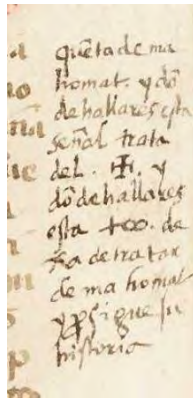 quẽta de ma
homat. y dõ
de hallares esta
señal trata
del . ✠ . y
dõ de hallares
esta +∞. de
xa de tratar
de mahomat
y p̱sigue su
historia